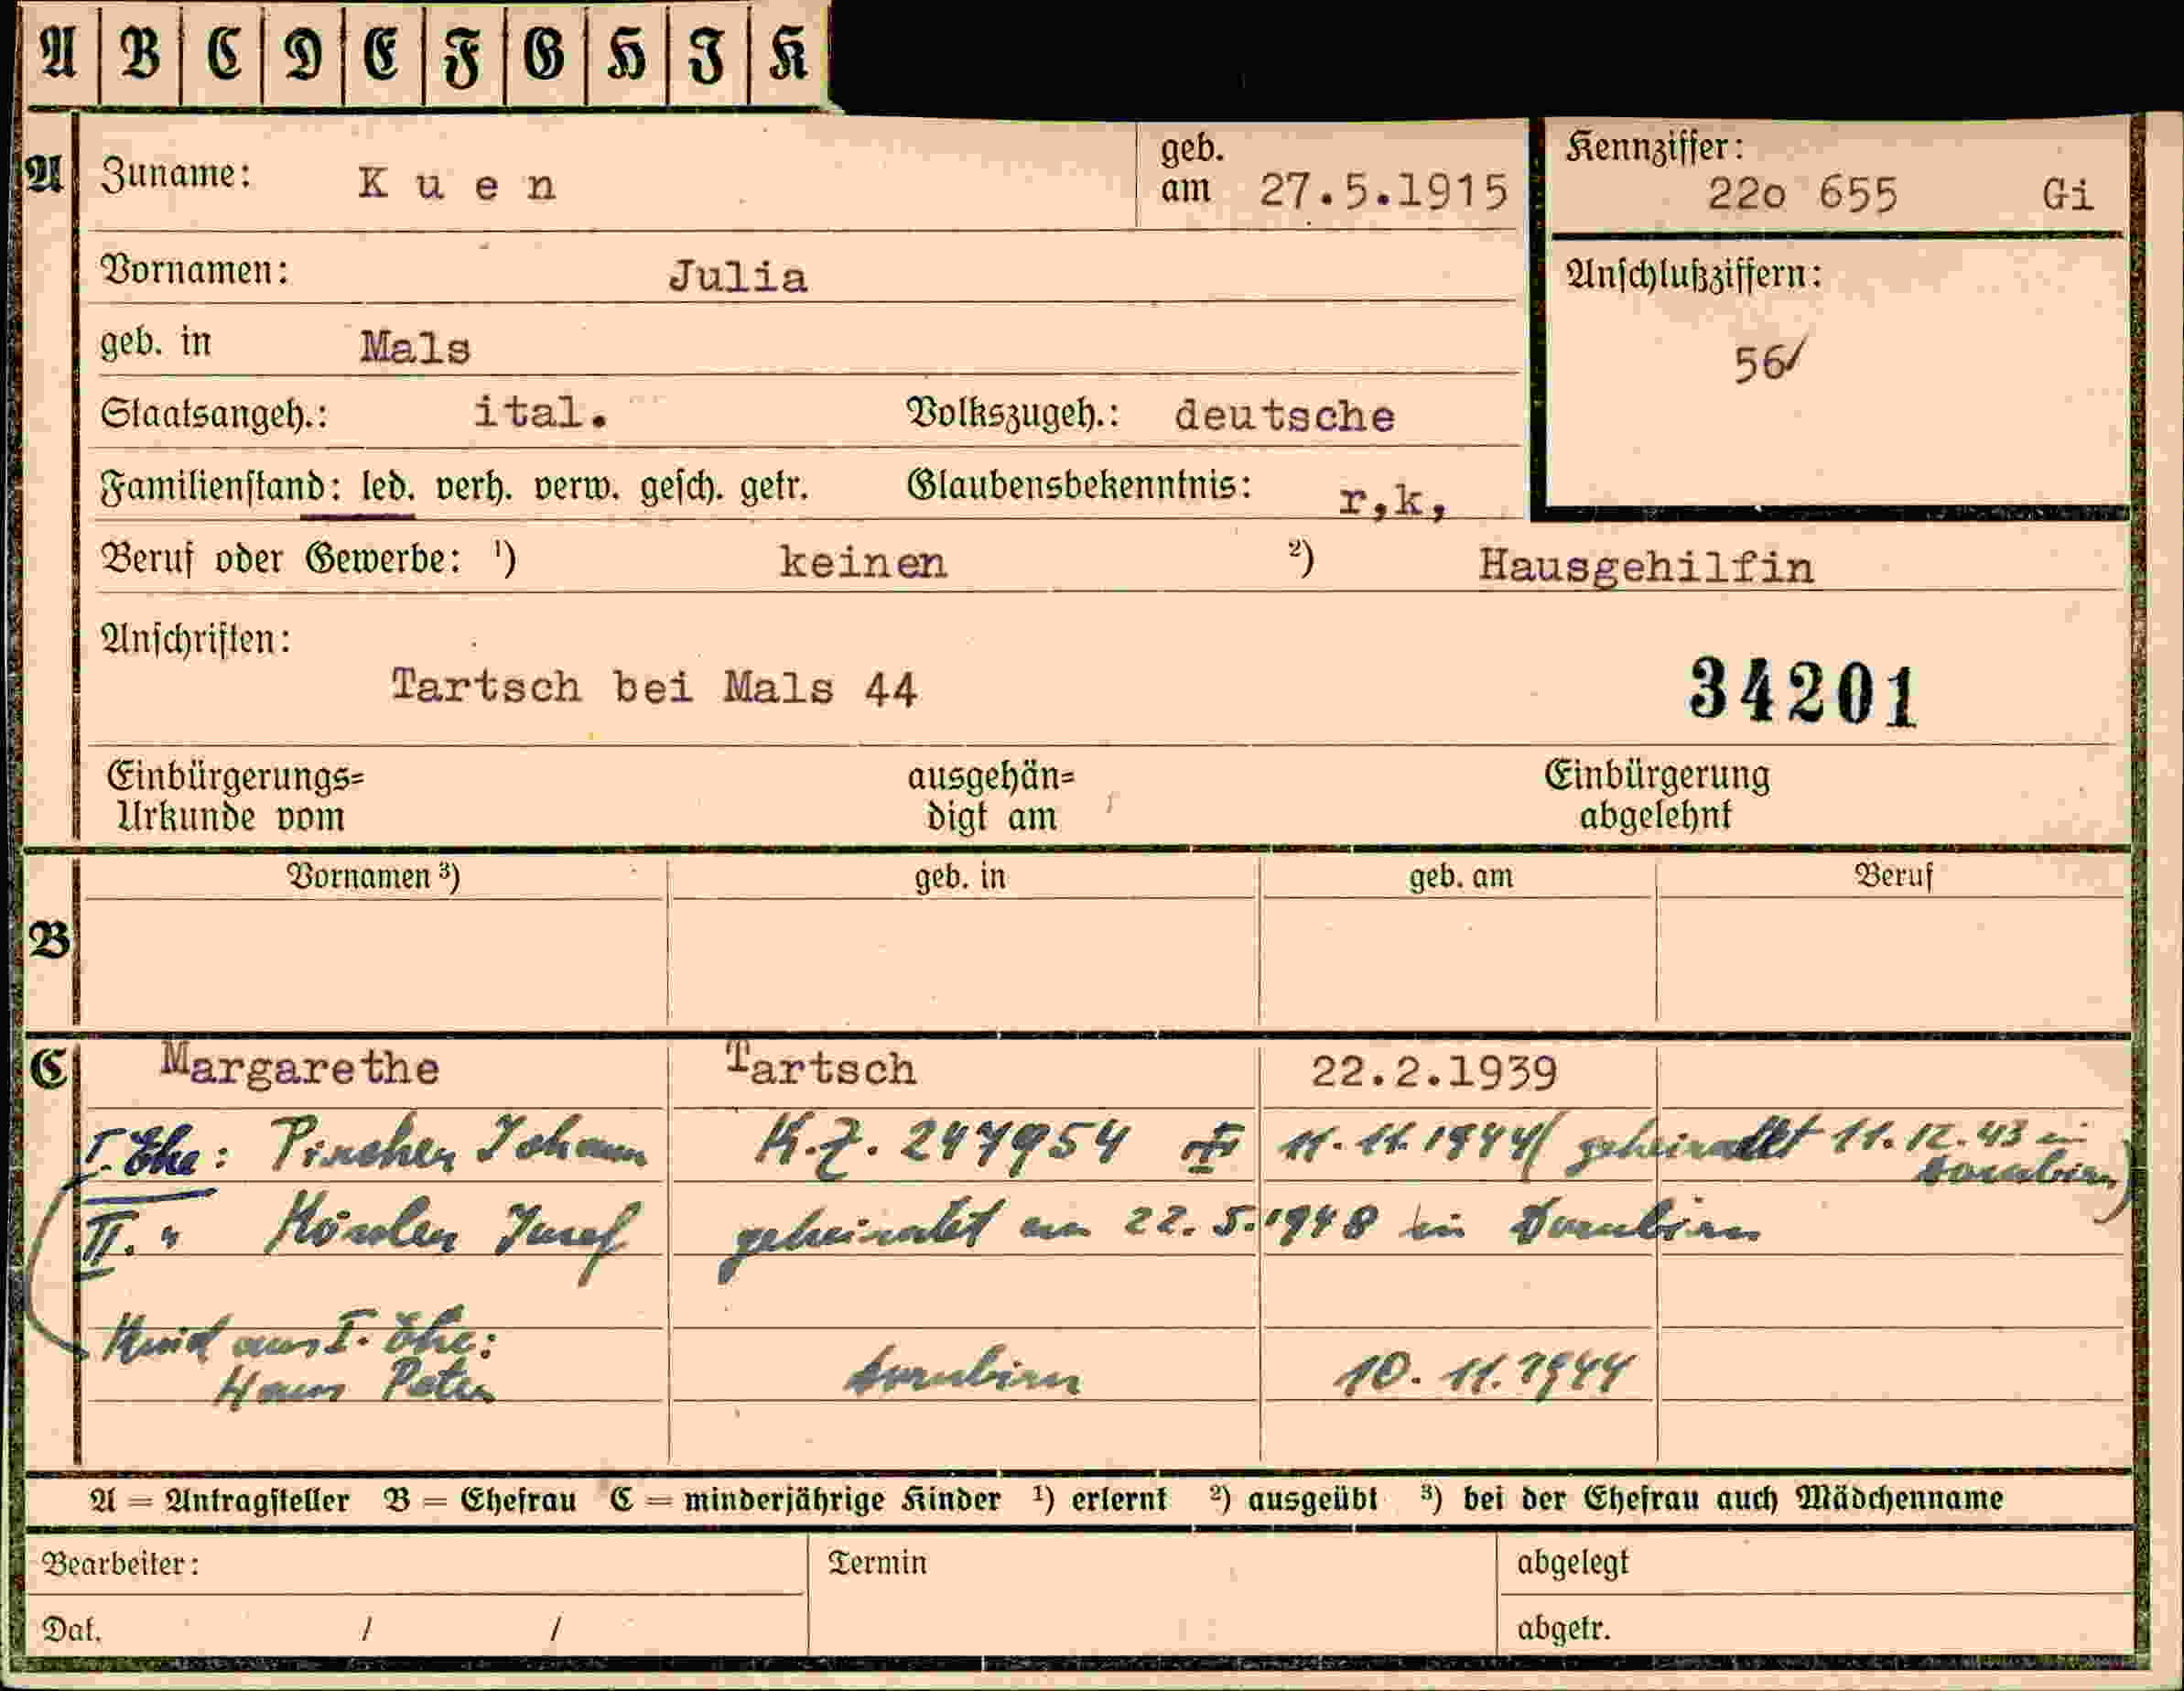 A B C D E F G H J K
A Zuname: Kuen geb. am 27.5.1915 Kennziffer: 22o 655 Gi
Vornamen: Julia Anschlußziffern:
geb. in Mals 56/
Staatsangeh.: ital. Volkszugeh.: deutsche
Familienstand: led. verh. verw. gesch. getr. Glaubensbekenntnis: r,k,
Beruf oder Gewerbe: ¹) keinen ²) Hausgehilfin
Anschriften:
Tartsch bei Mals 44 34201
Einbürgerungs= ausgehän= Einbürgerung
Urkunde vom digt am abgelehnt
Vornamen ³) geb. in geb. am Beruf
B
C Margarethe Tartsch 22.2.1939
I. Ehe: Johann K.Z. 247954 11.11.1944 (geheiratet 11.12.43 in
Dornbirn)
II. " Josef geheiratet am 22.5.1948 in Dornbirn
Kind aus I. Ehe:
Hans Peter Dornbirn 10.11.1944
A = Antragsteller B = Ehefrau C = minderjährige Kinder ¹) erlernt ²) ausgeübt ³) bei der Ehefrau auch Mädchenname
Bearbeiter: Termin abgelegt
Dat. / / abgetr.